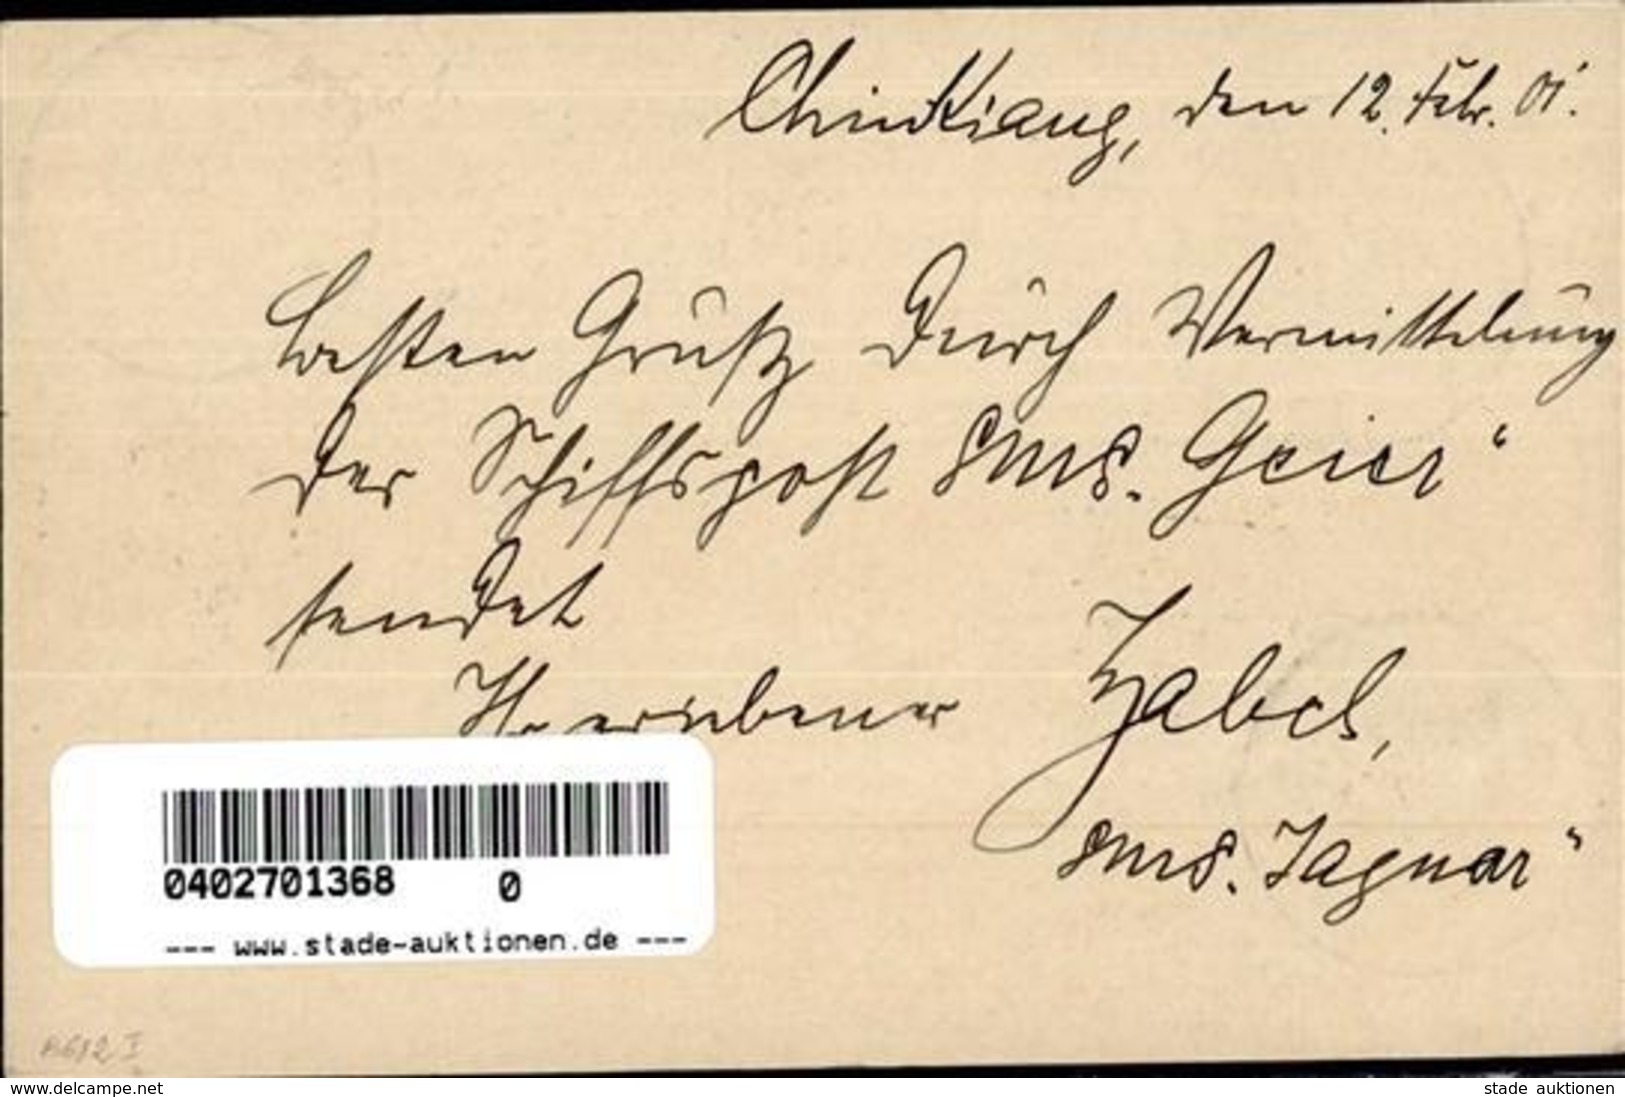 ChinKiang, den 12. Febr. 01.
besten Gruß durch Vermittelung
der Schiffspost SMS. Geier“
sendet
Ihr ergebener Zabel,
SMS. Jaguar“
0402701368 0
--- www.stade-auktionen.de ---
www.delcampe.net
stade auktionen